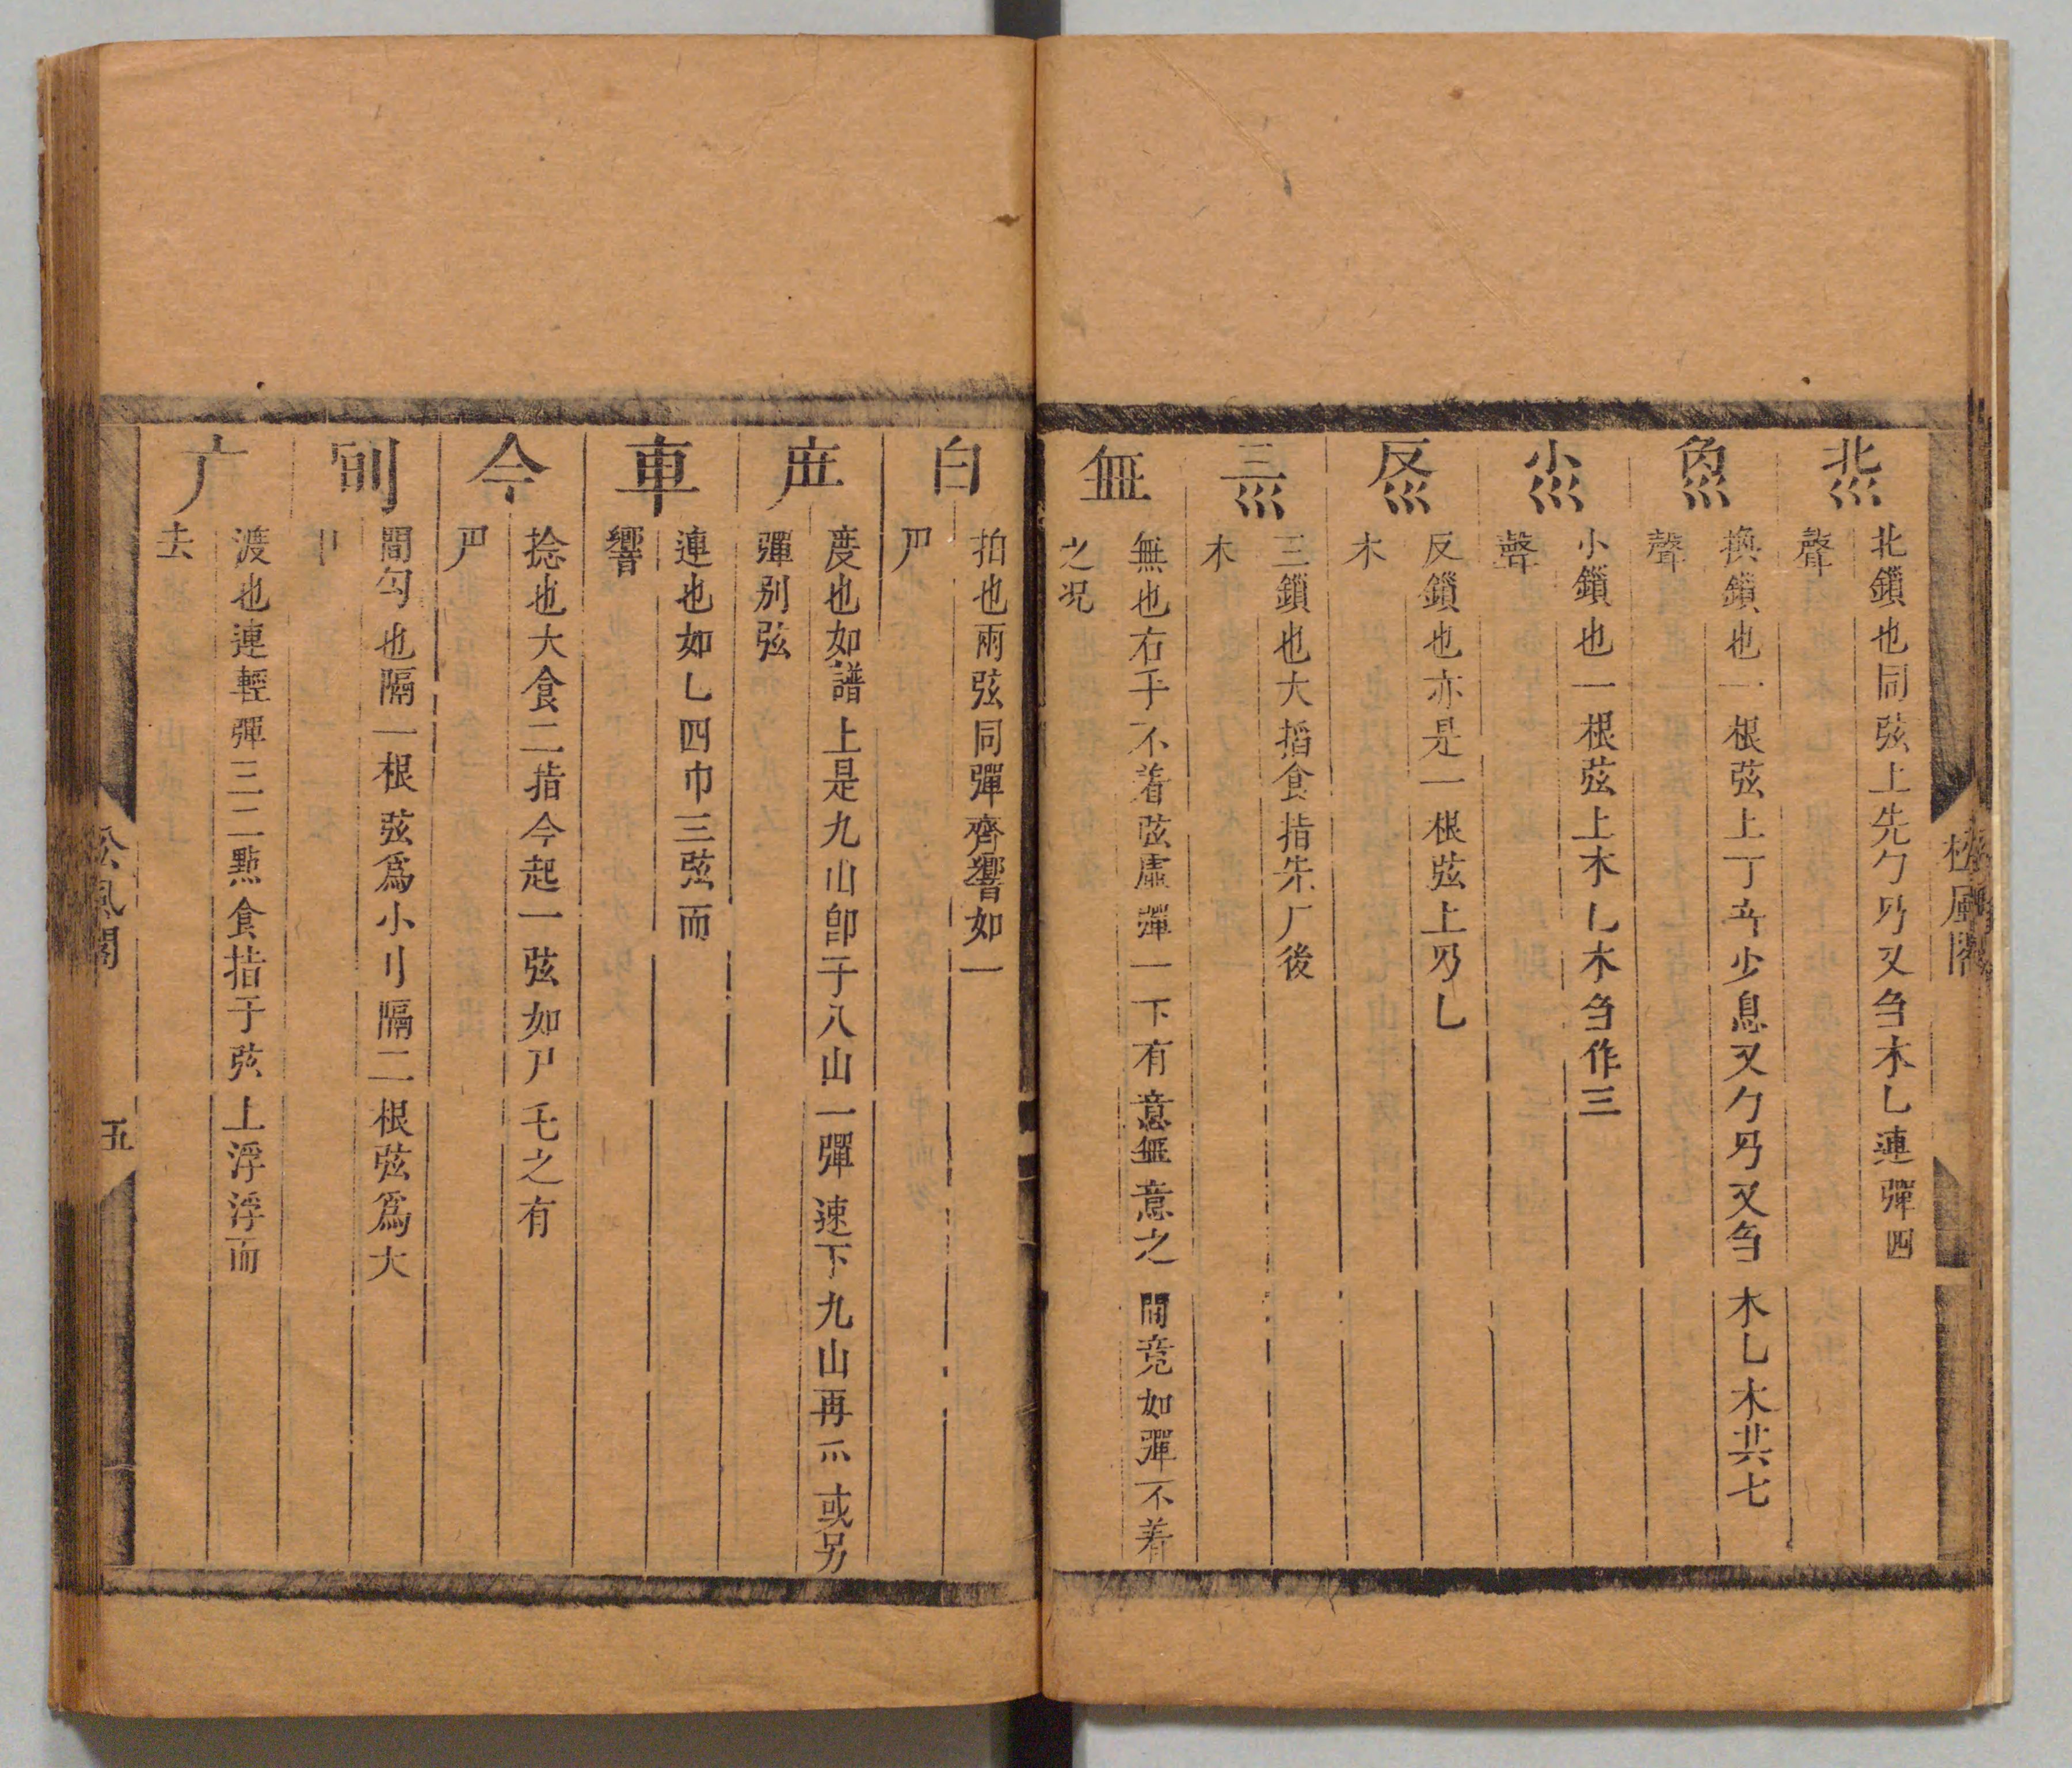 北鎖也同弦上先勹㐆又刍木乚連彈四
聲
換鎖也一根弦上丁少息又勹㐆又刍木乚木共七
聲
小鎖也一根弦上木乚木刍作三
聲
反鎖也亦是一根弦上乚
木
三鎖也大搯食指先厂後
木
無也右手不着弦虛彈一下有意無意之間竟如彈不着
之況
松風閣
白
拍也兩弦同彈齊響如一
度也如譜上是九山卽于八山一彈速下九山再或另
彈別弦
車
連也如乚四巾三弦而
響
今
捻也大食二指今起一弦如尸乇之有
間勾也隔一根弦爲小刂隔二根弦爲大
渡也連輕彈三二點食指于弦上浮浮而
去
松風閣
五